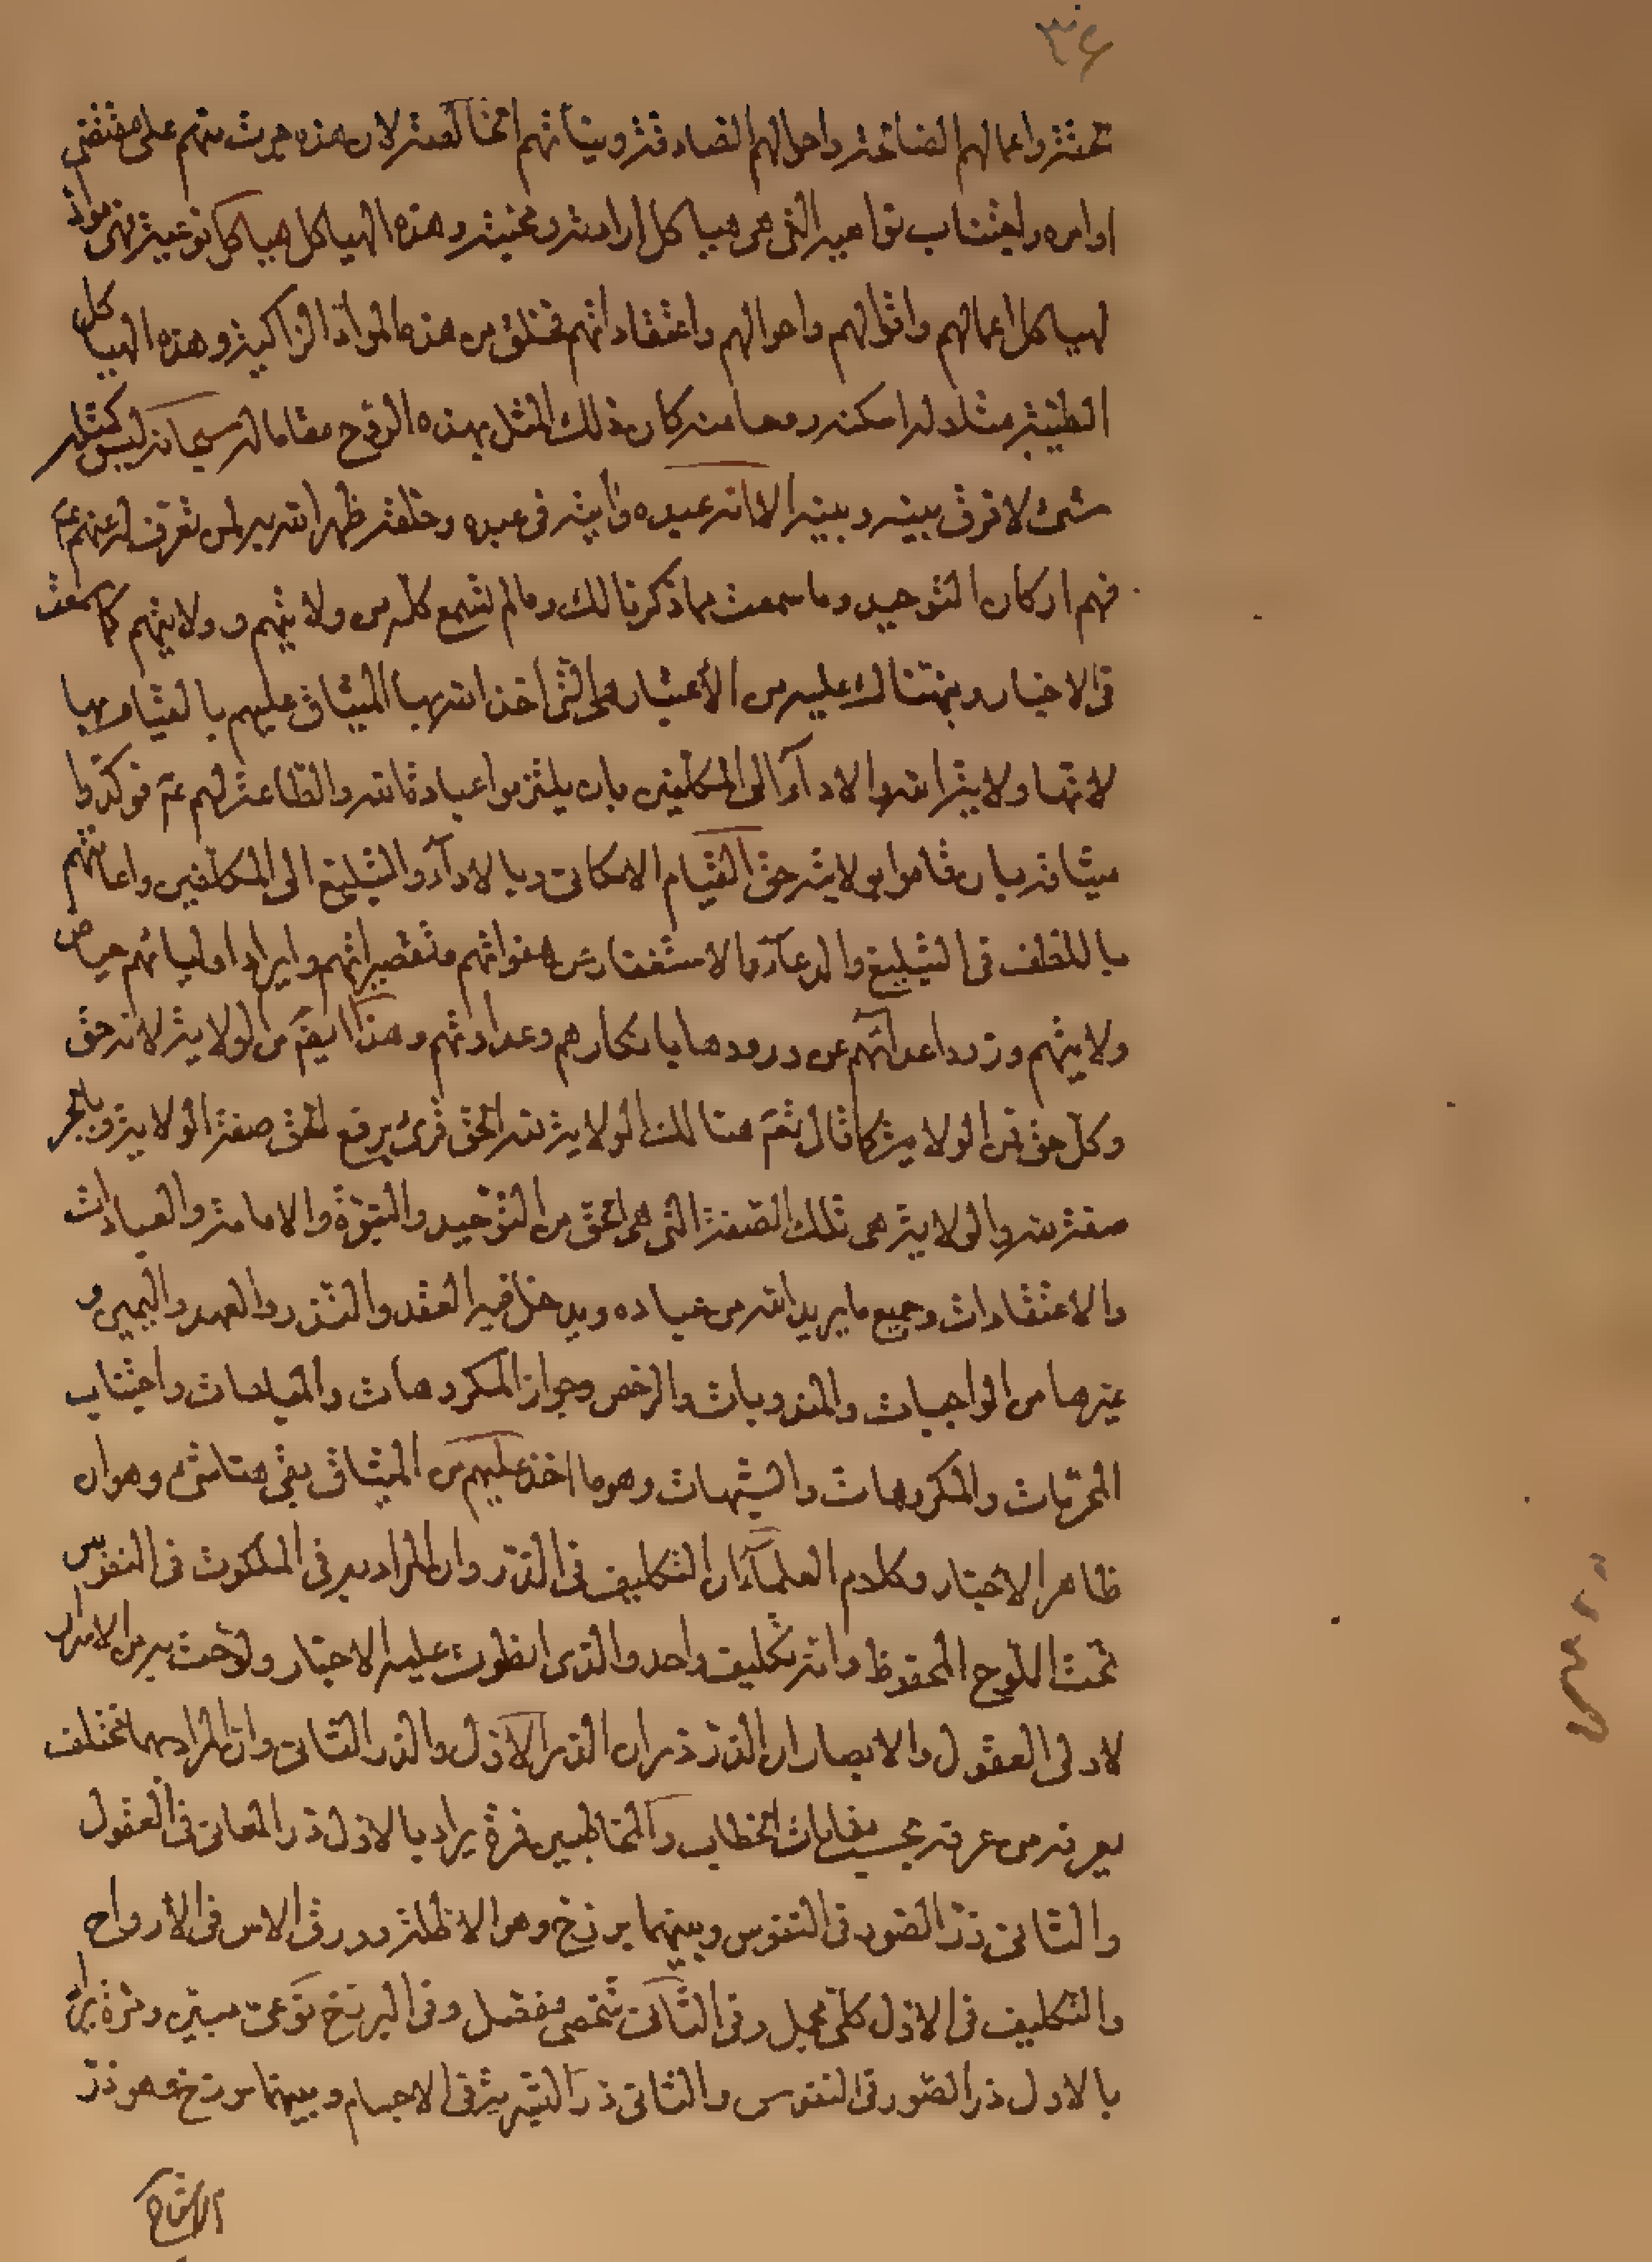 ٣۶
حقة واعمالهم الصالحة واحوالهم الصادقة ونياتهم الخالصة لان هذه جرت منهم على مقتضى
اوامره واجتناب نواهيه التى هى هياكل ارادته ومحبته وهذه الهياكل هياكل توحيده فهى مواد
لهياكل اعمالهم واقوالهم واحوالهم واعتقاداتهم فخلق من هذه المواد الزاكية وهذه الهياكل
الطيبة مثلا له اسكنه روحا منه كان ذلك المثل بهذه الروح مقاما له سبحانه ليس كمثله
شئ لا فرق بينه وبينه الا انه عبده وايته فى عبده وخلقه ظهر الله به لمن تعرف له عنهم ع
فهم اركان التوحيد وما سمعت مما ذكرنا لك وما لم تسمع كله من ولايتهم و ولايتهم كما سمعت
فى الاخبار ونبهناك عليه من الاعتبار هى التى اخذ الله بها الميثاق عليهم بالقيام بها
لانها ولاية الله والاداء الى المكلفين بان يلتزموا عباداة الله والطاعة لهم ع فوكدوا
ميثاقه بان قاموا بولايته حق القيام الامكانى وبالاداء والتبليغ الى المكلفين واعانتهم
باللطف فى التبليغ والدعاء والاستغفار من هفواتهم وتقصيراتهم وايراد اوليائهم حياض
ولايتهم وزود اعدائهم عن ورودها بانكارهم وعداوتهم وهذا ايضا من الولاية لانه حق
وكل حق فمن الولاية كما قال تعم هنالك الولاية لله الحق قرئ برفع الحق صفة الولاية وبالجر
صفة لله والولاية هى تلك الصفة التى هى الحق من التوحيد والنبوة والامامة والعبادات
والاعتقادات وجميع ما يريد الله من عباده ويدخل فيه العقد والنذر والعهد واليمين و
غيرها من الواجبات والمندوبات والرخص وجواز المكروهات والمباحات واجتناب
المحرمات والمكروهات والشبهات وهو ما اخذ عليهم من الميثاق بقى هنا شئ وهو ان
ظاهر الاخبار وكلام العلماء ان التكليف فى الذر وان المراد به فى الملكوت فى النفوس
تحت اللوح المحفوظ وانه تكليف واحد والذى انطوت عليه الاخبار ولاحت به من الاسرار
لاولى العقول والابصار ان الذر ذران الذر الاول والذر الثانى وان المراد بهما مختلف
يعرفه من عرفه بحسب مقامات الخطاب والمخاطبين فمرة يراد بالاول ذر المعانى فى العقول
والثانى ذر الصور فى النفوس وبينهما برزخ وهو الاظلة وورق الاس فى الارواح
والتكليف فى الاول كلى مجمل وفى الثانى شخصى مفصل وفى البرزخ نوعى مبين ومرة يراد
بالاول ذر الصور فى النفوس والثانى ذر البشرية فى الاجسام وبينهما برزخ وهو ذر
الاشباح